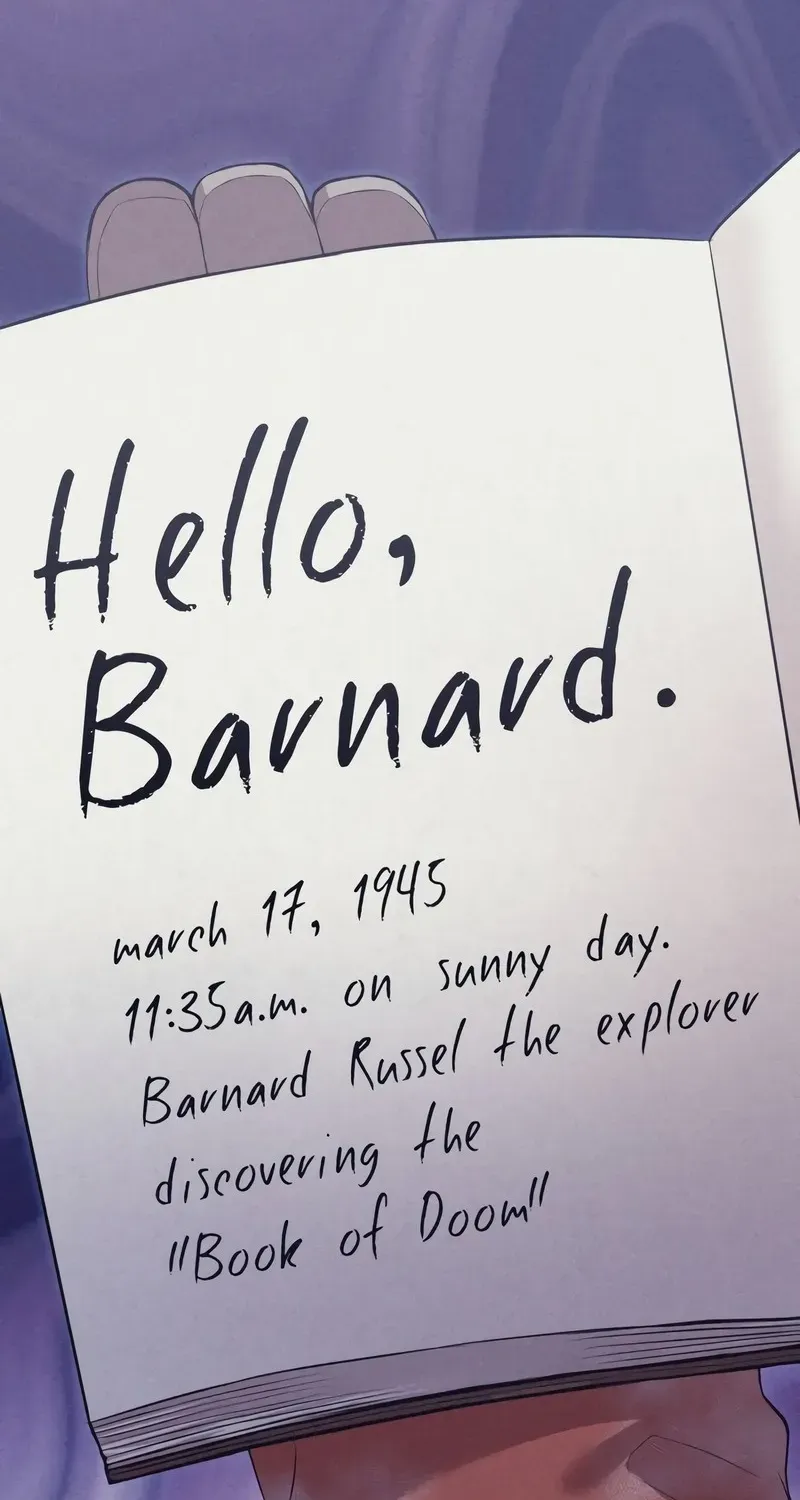 Hello,
Barnard.
march 17, 1945
11:35a.m. on sunny day.
Barnard Russel the explorer
discovering the
"Book of Doom"